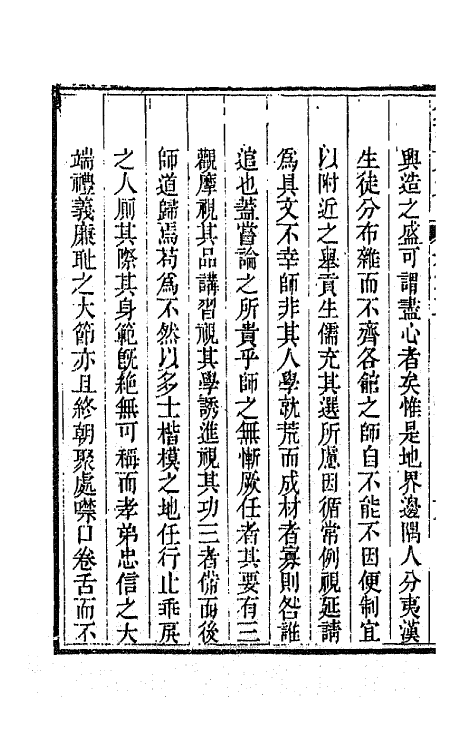 興造之盛可謂盡心者矣惟是地界邊隅人分夷漢
生徒分布雜而不齊各館之師自不能不因便制宜
以附近之舉貢生儒充其選所慮因循常例視延請
爲具文不幸師非其人學就荒而成材者寡則咎誰
逭也蓋嘗論之所貴乎師之無慚厥任者其要有三
觀摩視其品講習視其學誘進視其功三者備而後
師道歸焉苟爲不然以多士楷模之地任行止乖戾
之人厠其際其身範旣絶無可稱而孝弟忠信之大
端禮義廉耻之大節亦且終朝聚處噤口卷舌而不